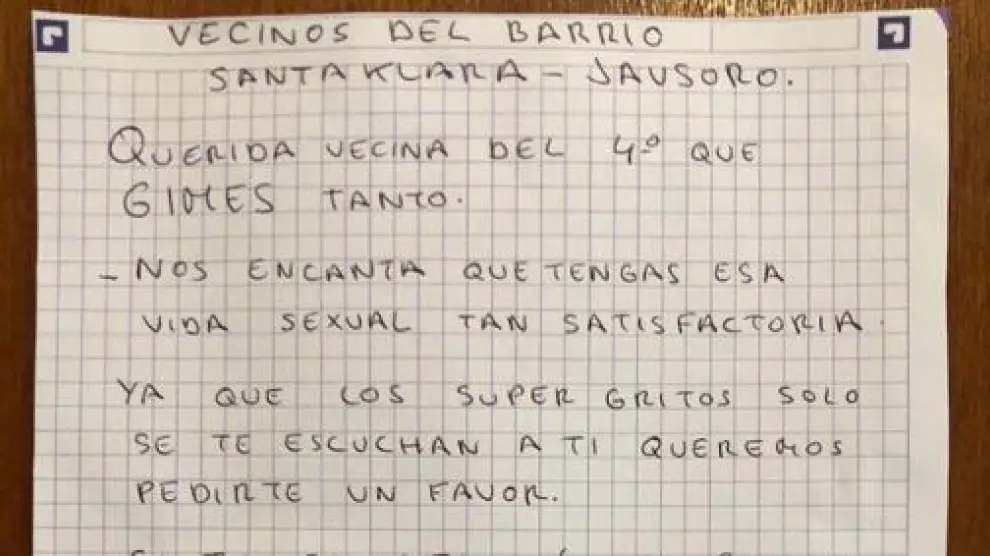 VECINOS DEL BARRIO
SANTA KLARA - JAUSORO.
QUERIDA VECINA DEL 4º QUE
GIMES TANTO.
- NOS ENCANTA QUE TENGAS ESA
VIDA SEXUAL TAN SATISFACTORIA.
YA QUE LOS SUPER GRITOS SOLO
SE TE ESCUCHAN A TI QUEREMOS
PEDIRTE UN FAVOR.